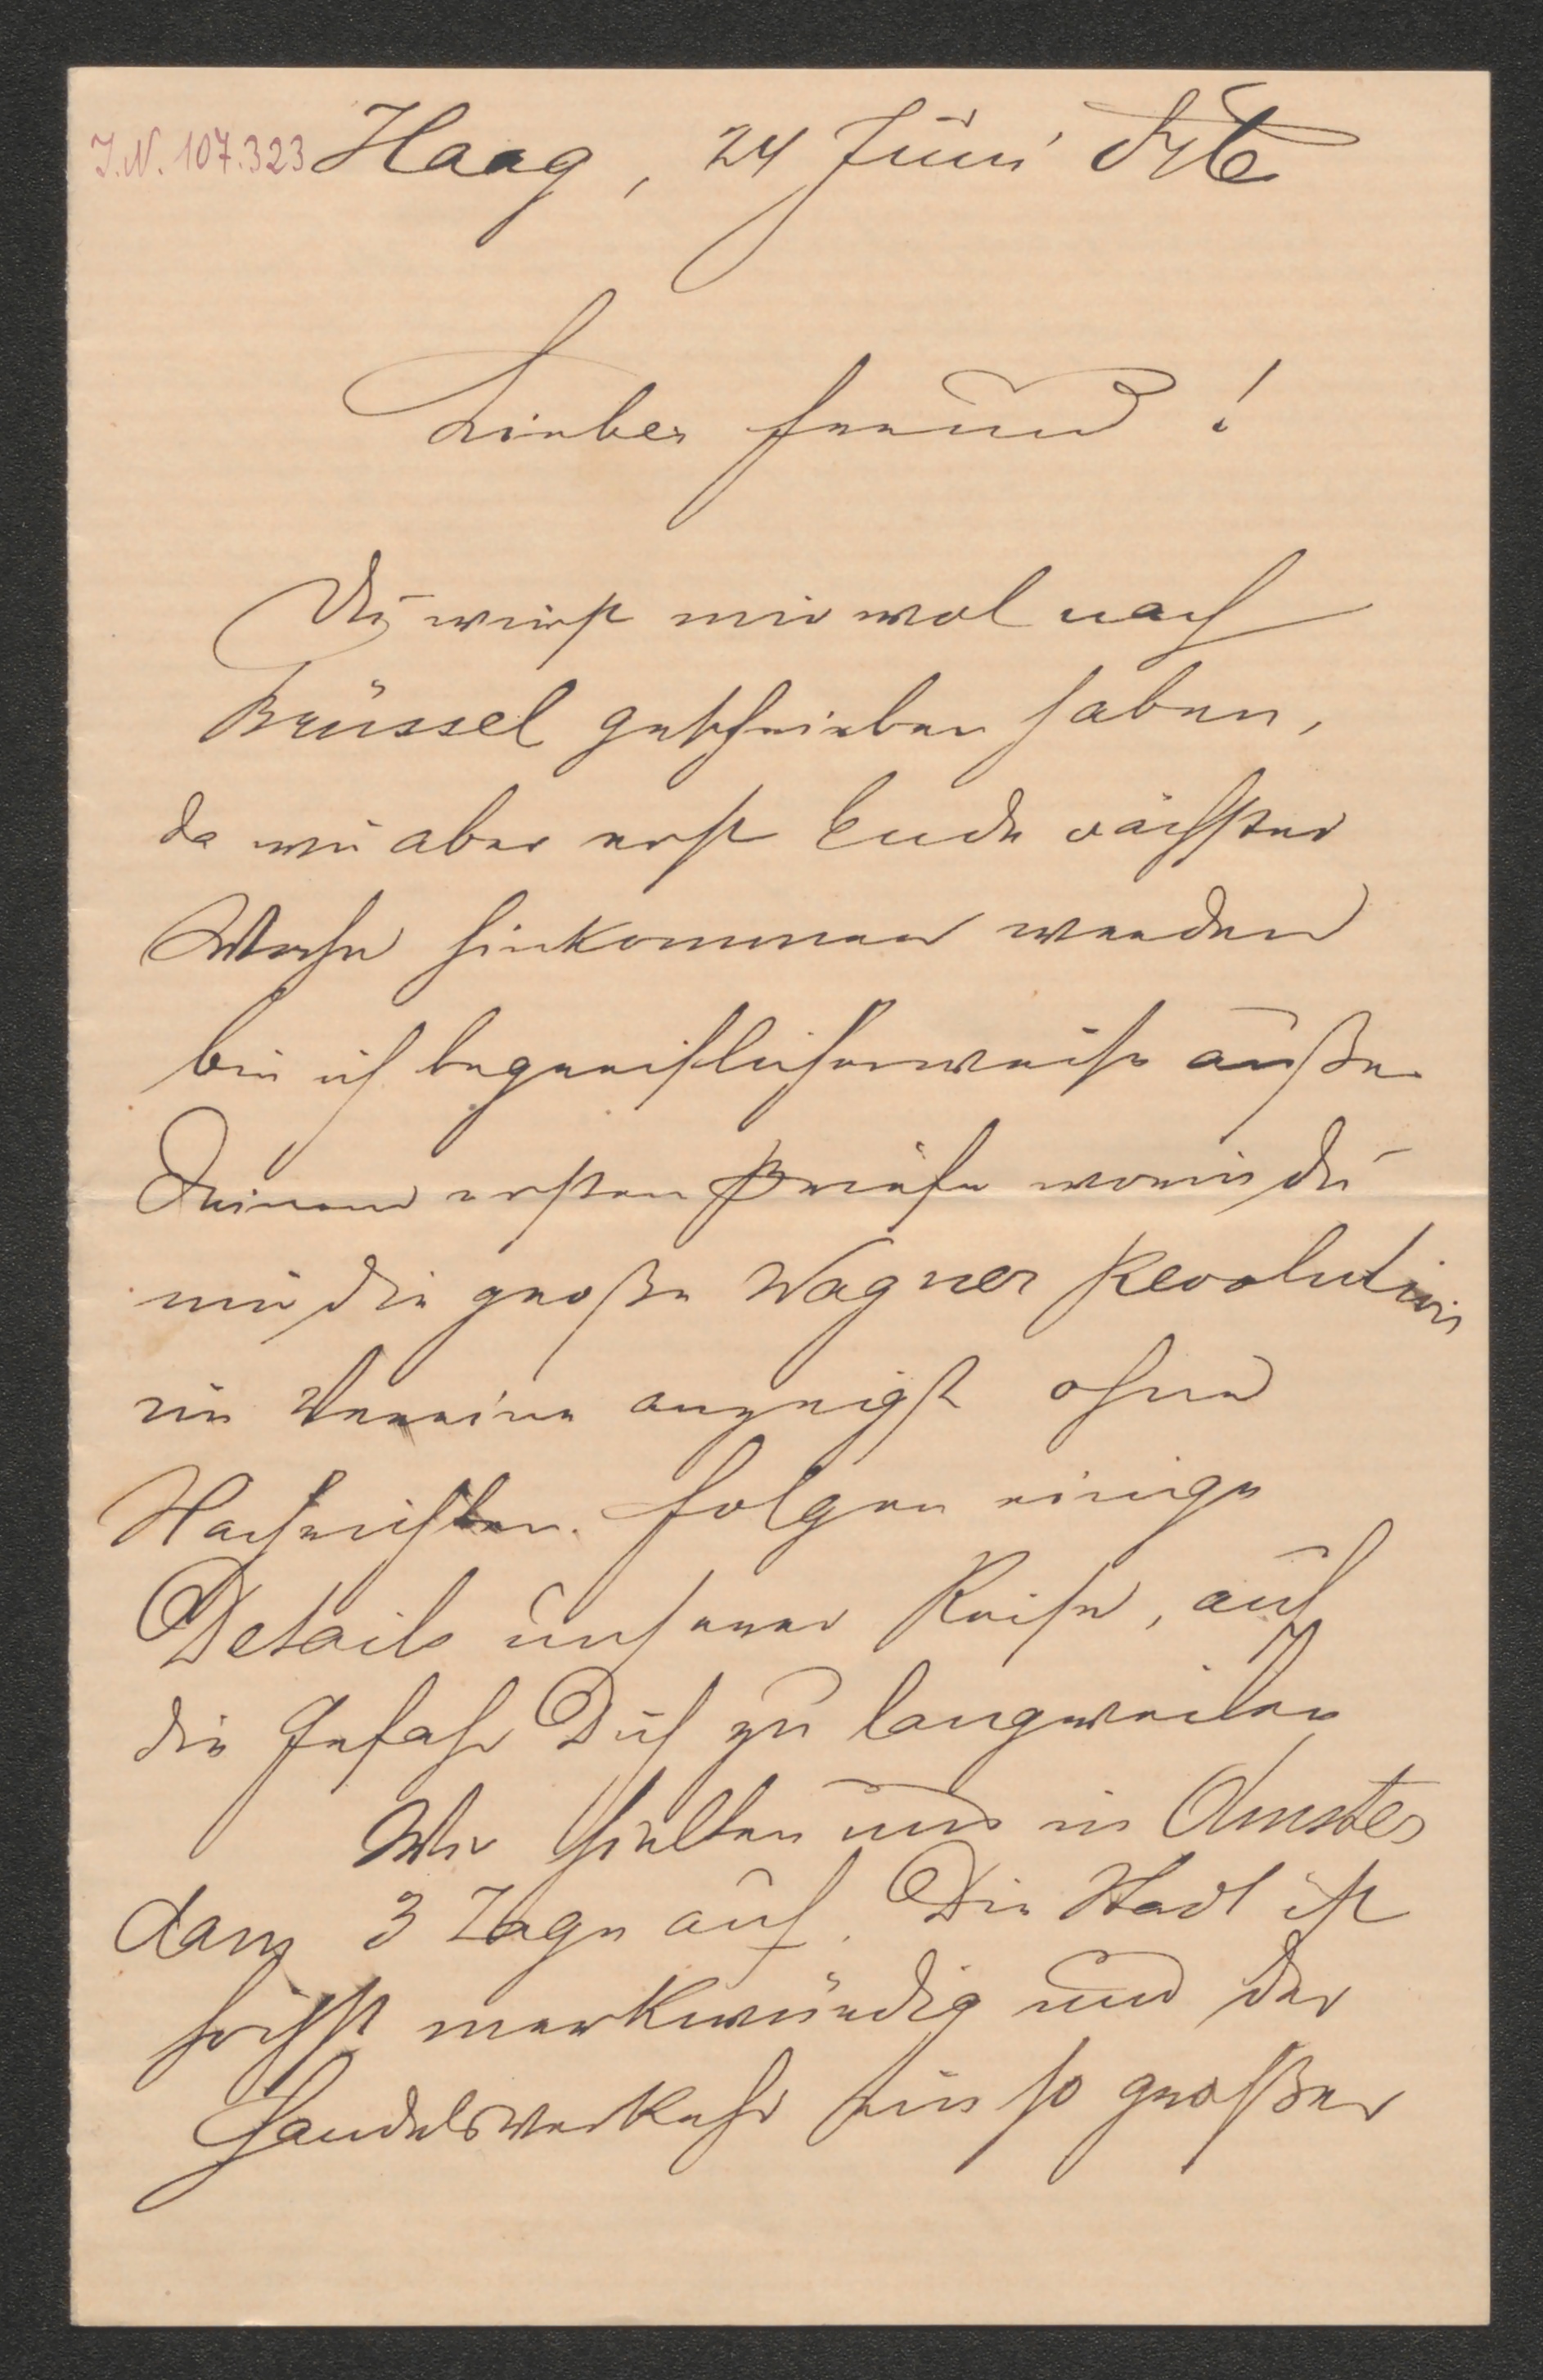 I.N. 107.323 Haag, 24 Juni
Lieber Freund!
Du wirst mir wol nach
Brüssel geschrieben haben,
da wir aber erst Ende nächster
Woche hinkommen werden
bin ich begreiflicherweise außer
Deinem ersten Briefe worin du
mir die große Wagner Revolution
im Vereine anzeigst ohne
Nachrichten. Folgen einige
Details unserer Reise, auf
die Gefahr Dich zu langweilen
Wir hielten uns in Amster
dam 3 Tage auf. Die Stadt ist
höchst merkwürdig und der
Handelsverkehr ein so großer